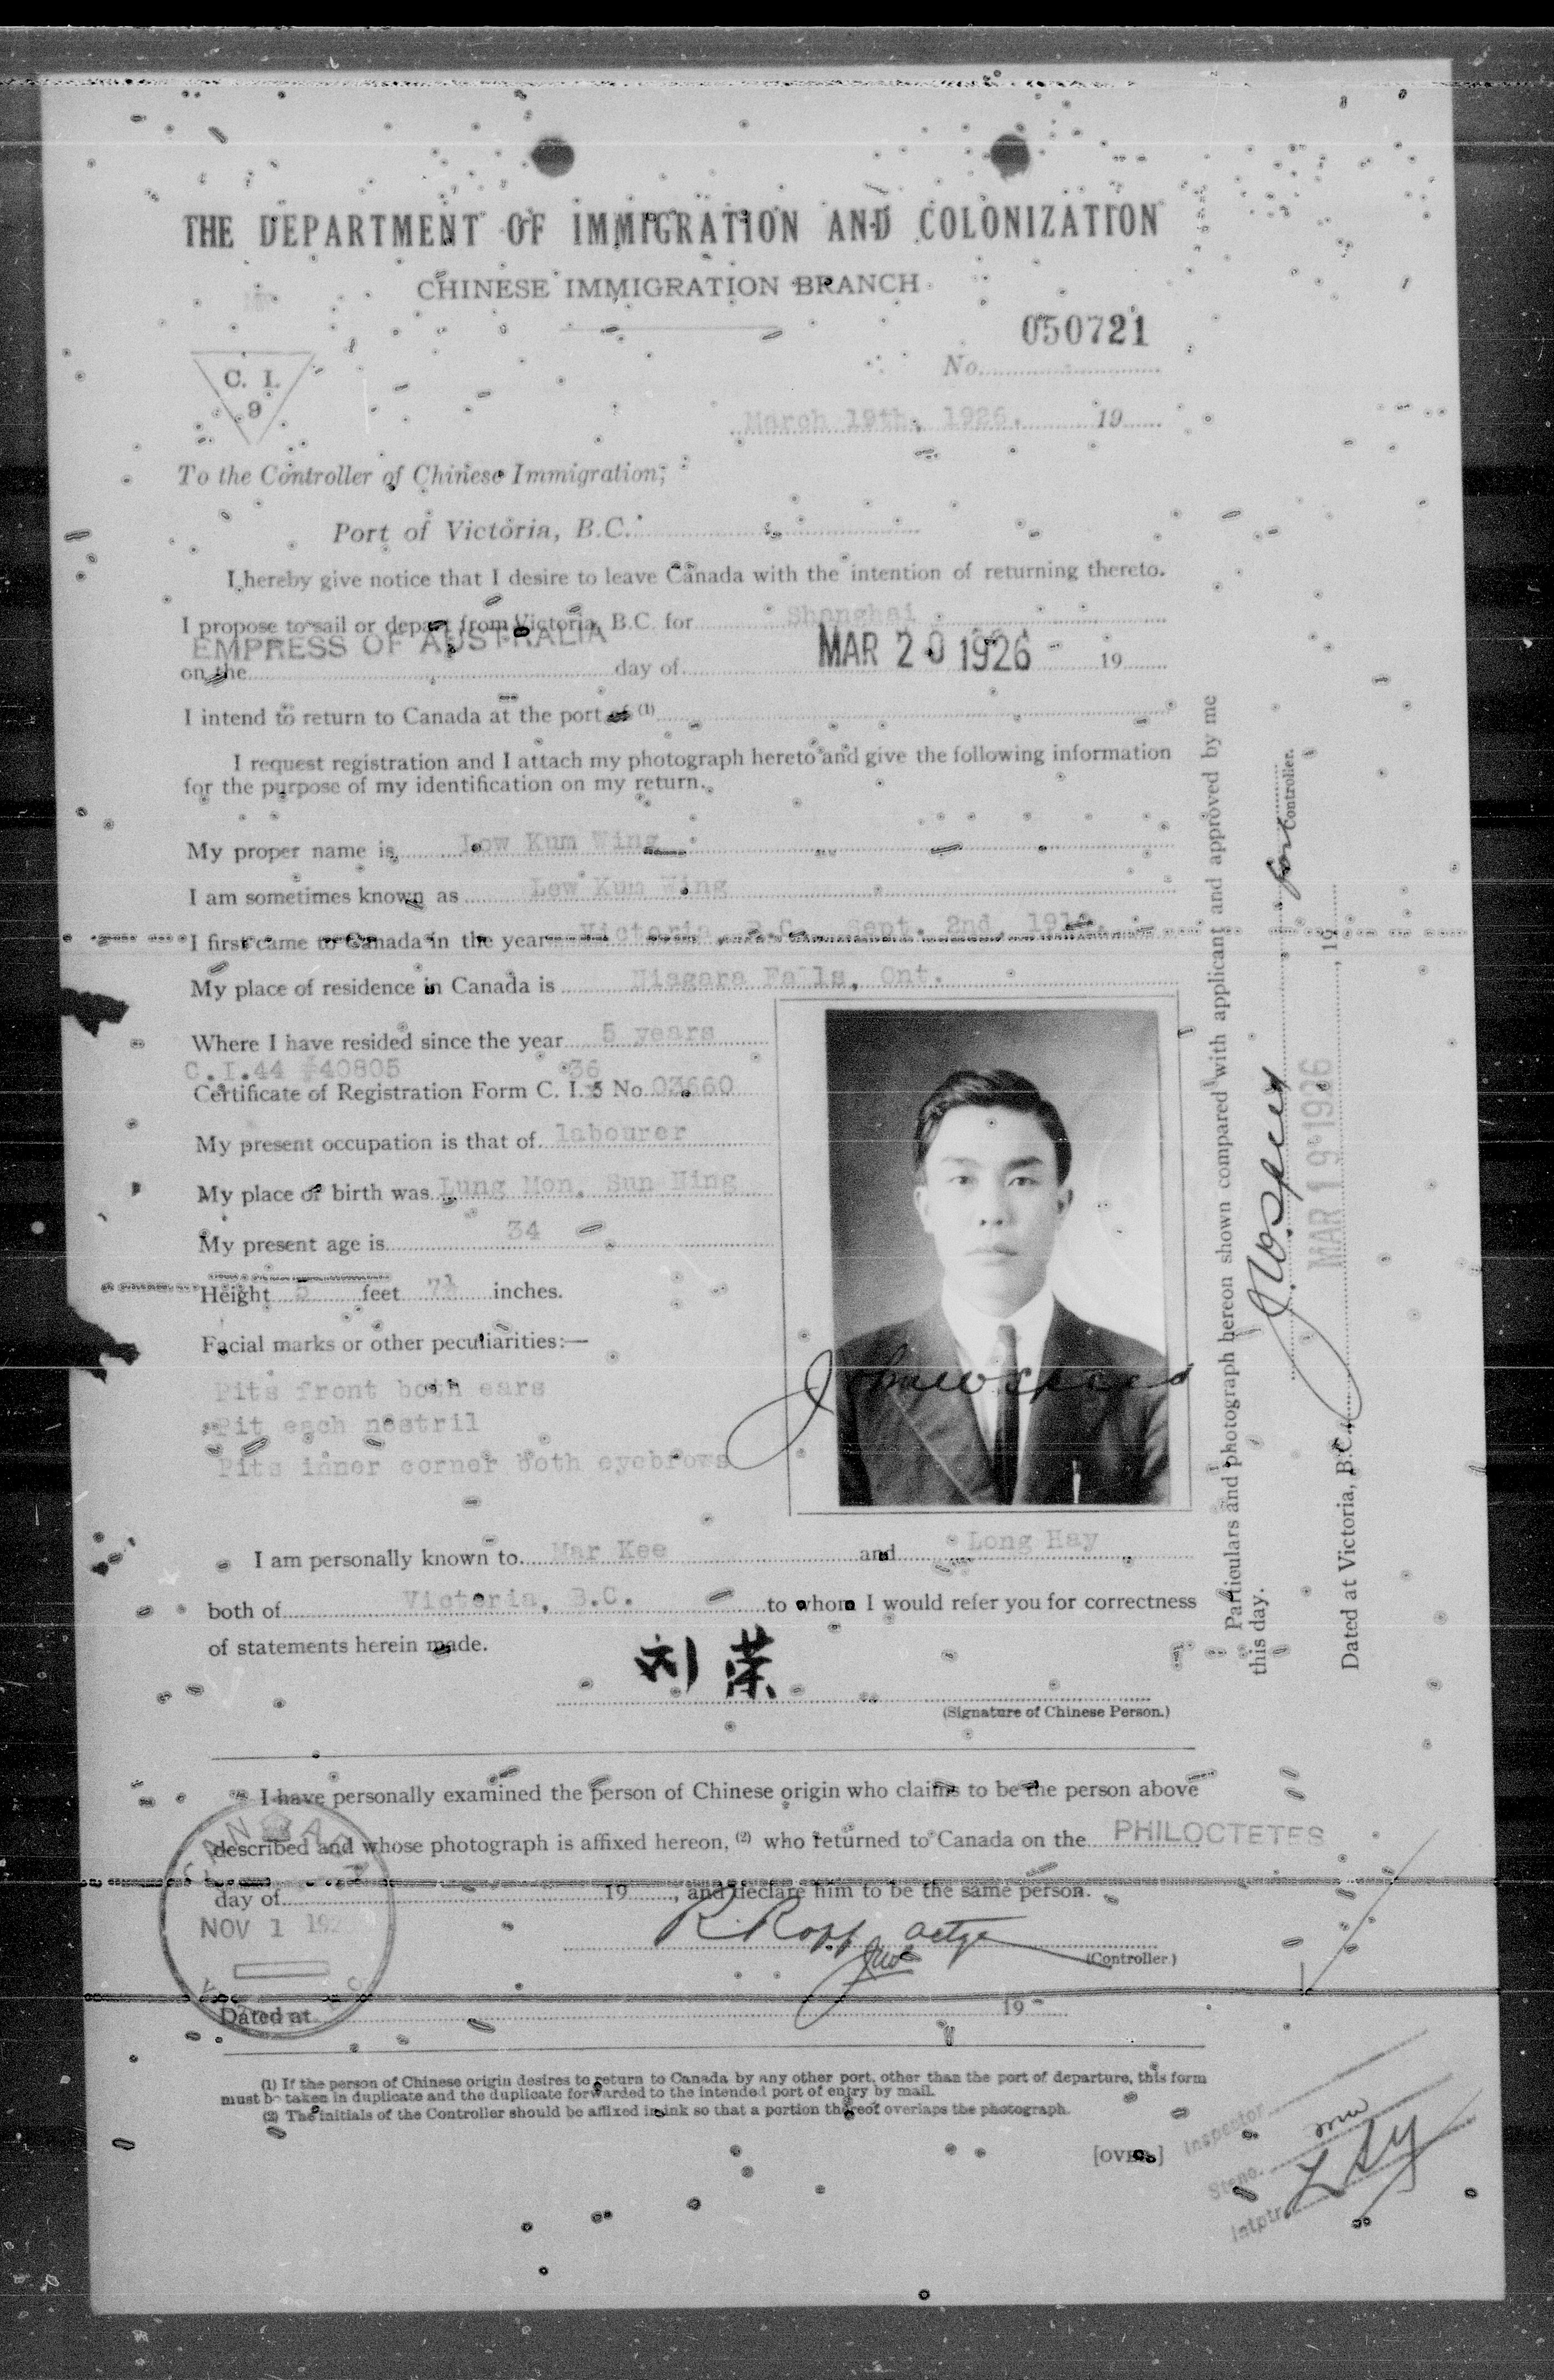 THE DEPARTMENT OF IMMIGRATION AND COLONIZATION
CHINESE IMMIGRATION BRANCH
050721
No.
C. I.
9
March 19th, 1926. 19
To the Controller of Chinese Immigration,
Port of Victoria, B.C.
I hereby give notice that I desire to leave Canada with the intention of returning thereto.
I propose to sail or depart from Victoria, B.C. for Shanghai
EMPRESS OF AUSTRALIA
on the day of MAR 20 1926 19
I intend to return to Canada at the port of (1)
I request registration and I attach my photograph hereto and give the following information
for the purpose of my identification on my return.
My proper name is Low Kum Wing
I am sometimes known as Lew Kum Wing
I first came to Canada in the year Victoria, B.C. Sept. 2nd,
My place of residence in Canada is Niagara Falls, Ont.
Where I have resided since the year 5 years
C.I.44 #40805 36
Certificate of Registration Form C. I. 5 No. 03660
My present occupation is that of labourer
My place of birth was Lung Mon, Sun Ning
My present age is 34
Height 5 feet 7½ inches.
Facial marks or other peculiarities:—
Pits front both ears
Pit each nostril
Pits inner corner both eyebrows
I am personally known to Mar Kee and Long Hay
both of Victoria, B.C. to whom I would refer you for correctness
of statements herein made.
刘 荣
(Signature of Chinese Person.)
I have personally examined the person of Chinese origin who claims to be the person above
described and whose photograph is affixed hereon, (2) who returned to Canada on the PHILOCTETES
day of 19 , and declare him to be the same person.
NOV 1
R. Ropp actg
(Controller)
Dated at 19
(1) If the person of Chinese origin desires to return to Canada by any other port, other than the port of departure, this form
must be taken in duplicate and the duplicate forwarded to the intended port of entry by mail.
(2) The initials of the Controller should be affixed in ink so that a portion thereof overlaps the photograph.
[OVER]
Inspector
Steno.
Intptr.
Particulars and photograph hereon shown compared with applicant and approved by me
this day.
for Controller.
MAR 19 1926
Dated at Victoria, B.C., 19